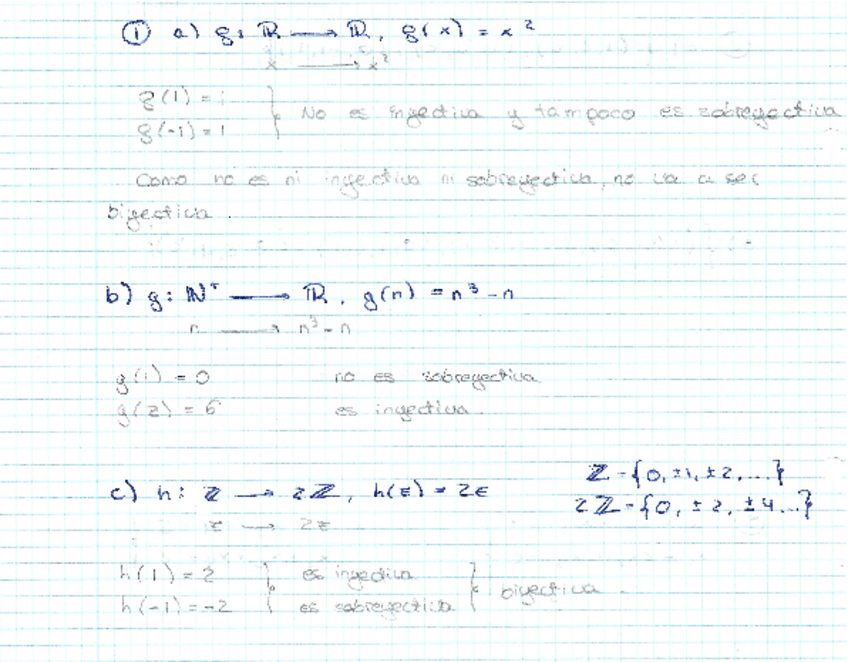 ① a) g: ℝ → ℝ, g(x) = x²
x → x²
g(1) = 1
g(-1) = 1
} No es inyectiva y tampoco es sobreyectiva
Como no es ni inyectiva ni sobreyectiva, no va a ser
biyectiva.
b) g: ℕ⁺ → ℝ, g(n) = n³ - n
n → n³ - n
g(1) = 0 no es sobreyectiva
g(2) = 6 es inyectiva.
c) h: ℤ → 2ℤ, h(z) = 2z
ℤ = {0, ±1, ±2, ...}
2ℤ = {0, ±2, ±4...}
z → 2z
h(1) = 2 } es inyectiva } biyectiva.
h(-1) = -2 es sobreyectiva